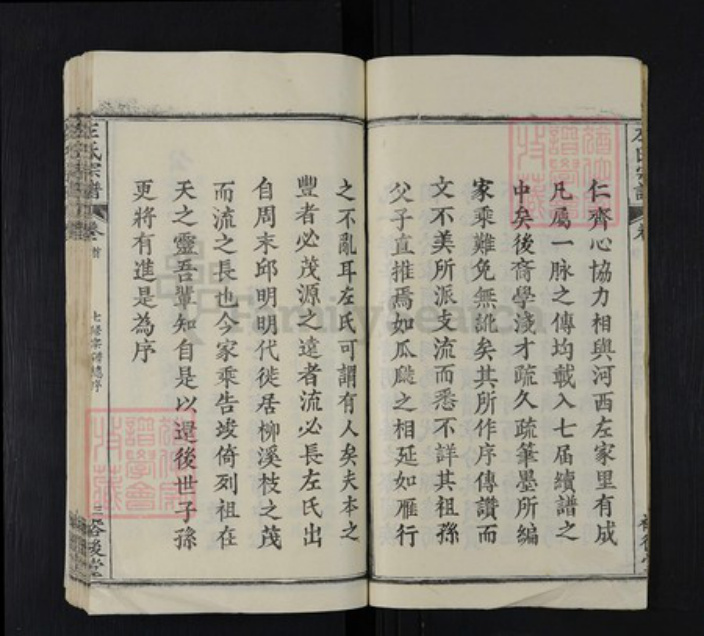 仁齊心協力相與河西左家里有成
凡屬一脉之傳均載入七届續譜之
中矣後裔學淺才疏久疏筆墨所編
家乘難免無訛矣其所作序傳讚而
文不美所派支流而悉不詳其祖孫
父子直推焉如瓜瓞之相延如雁行
之不亂耳左氏可謂有人矣夫本之
豐者必茂源之遠者流必長左氏出
自周末邱明明代徙居柳溪枝之茂
而流之長也今家乘告竣倚列祖在
天之靈吾輩知自是以還後世子孫
更將有進是為序
左氏宗譜
卷
首
七修宗譜總序
三
裕後堂
左氏宗譜
卷
裕後堂
FamilySearch